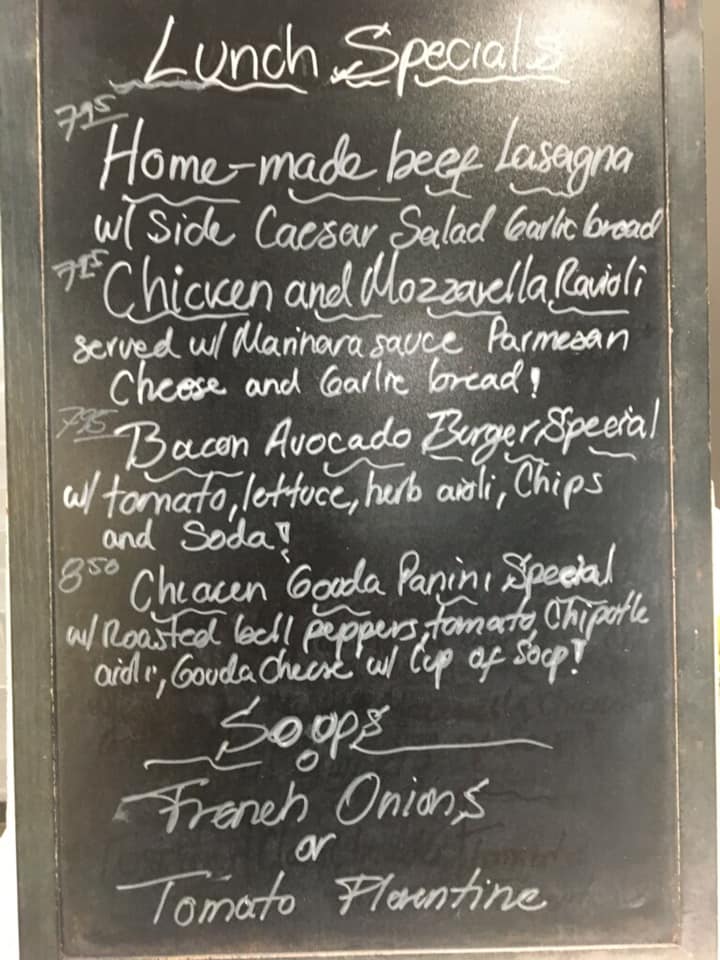 Lunch Specials
795
Home-made beef Lasagna
w/ Side Caesar Salad Garlic bread
795
Chicken and Mozzarella Ravioli
served w/ Marinara sauce Parmesan
Cheese and Garlic bread!
795
Bacon Avocado Burger Special
w/ tomato, lettuce, herb aioli, Chips
and Soda!
850
Chicken Gouda Panini Special
w/ Roasted bell peppers, tomato, Chipotle
aioli, Gouda Cheese w/ Cup of Soup!
Soups
French Onions
or
Tomato Florentine